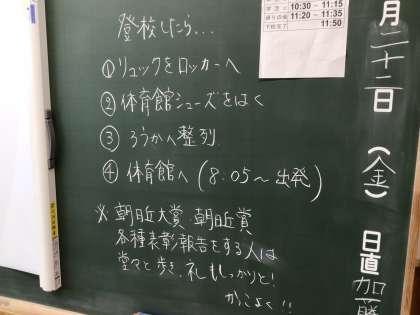 登校したら...
①リュックをロッカーへ
②体育館シューズをはく
③ろうかへ整列
④体育館へ(8:05〜出発)
※朝丘大賞、朝丘賞
各種表彰報告をする人は
堂々と歩き、礼もしっかりと!
かっこよく!!
10:30 ~ 11:15
11:20 ~ 11:35
11:50
月二十二日(金)
日直 加藤